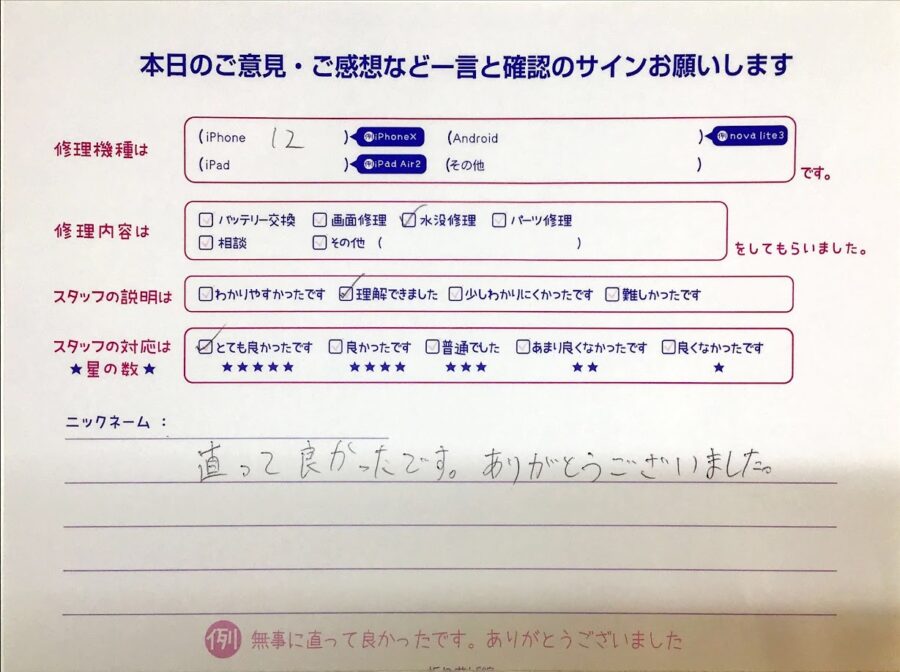 本日のご意見・ご感想など一言と確認のサインお願いします
修理機種は (iPhone 12 ) 例iPhoneX (Android ) 例nova lite3
(iPad ) 例iPad Air2 (その他 ) です。
修理内容は バッテリー交換 画面修理 水没修理 パーツ修理
相談 その他 ( ) をしてもらいました。
スタッフの説明は わかりやすかったです 理解できました 少しわかりにくかったです 難しかったです
スタッフの対応は とても良かったです 良かったです 普通でした あまり良くなかったです 良くなかったです
★星の数★ ★★★★★ ★★★★ ★★★ ★★ ★
ニックネーム：
直って良かったです。ありがとうございました。
例 無事に直って良かったです。ありがとうございました